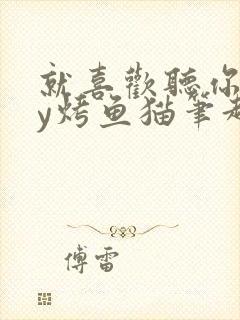 就喜歡聽你
y烤鱼猫筆趣
傅雷